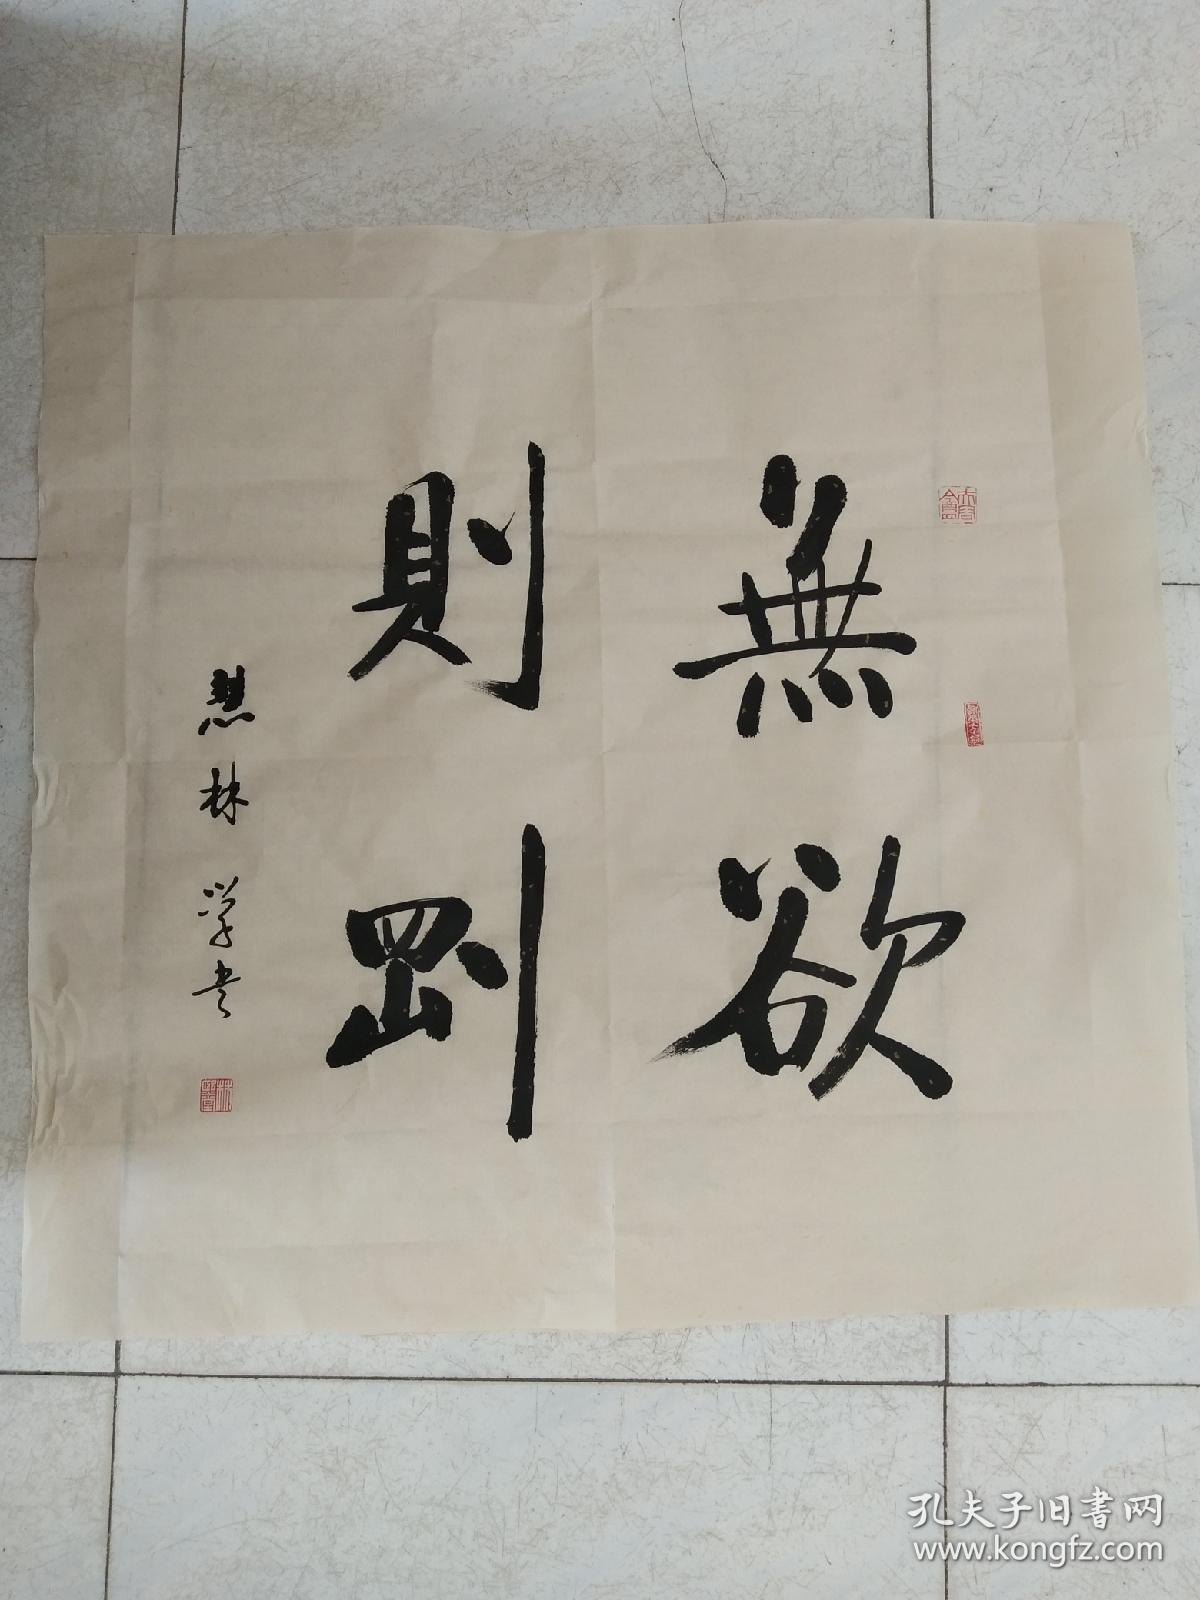 無欲
則剛
慧林学书
孔夫子旧書网
www.kongfz.com